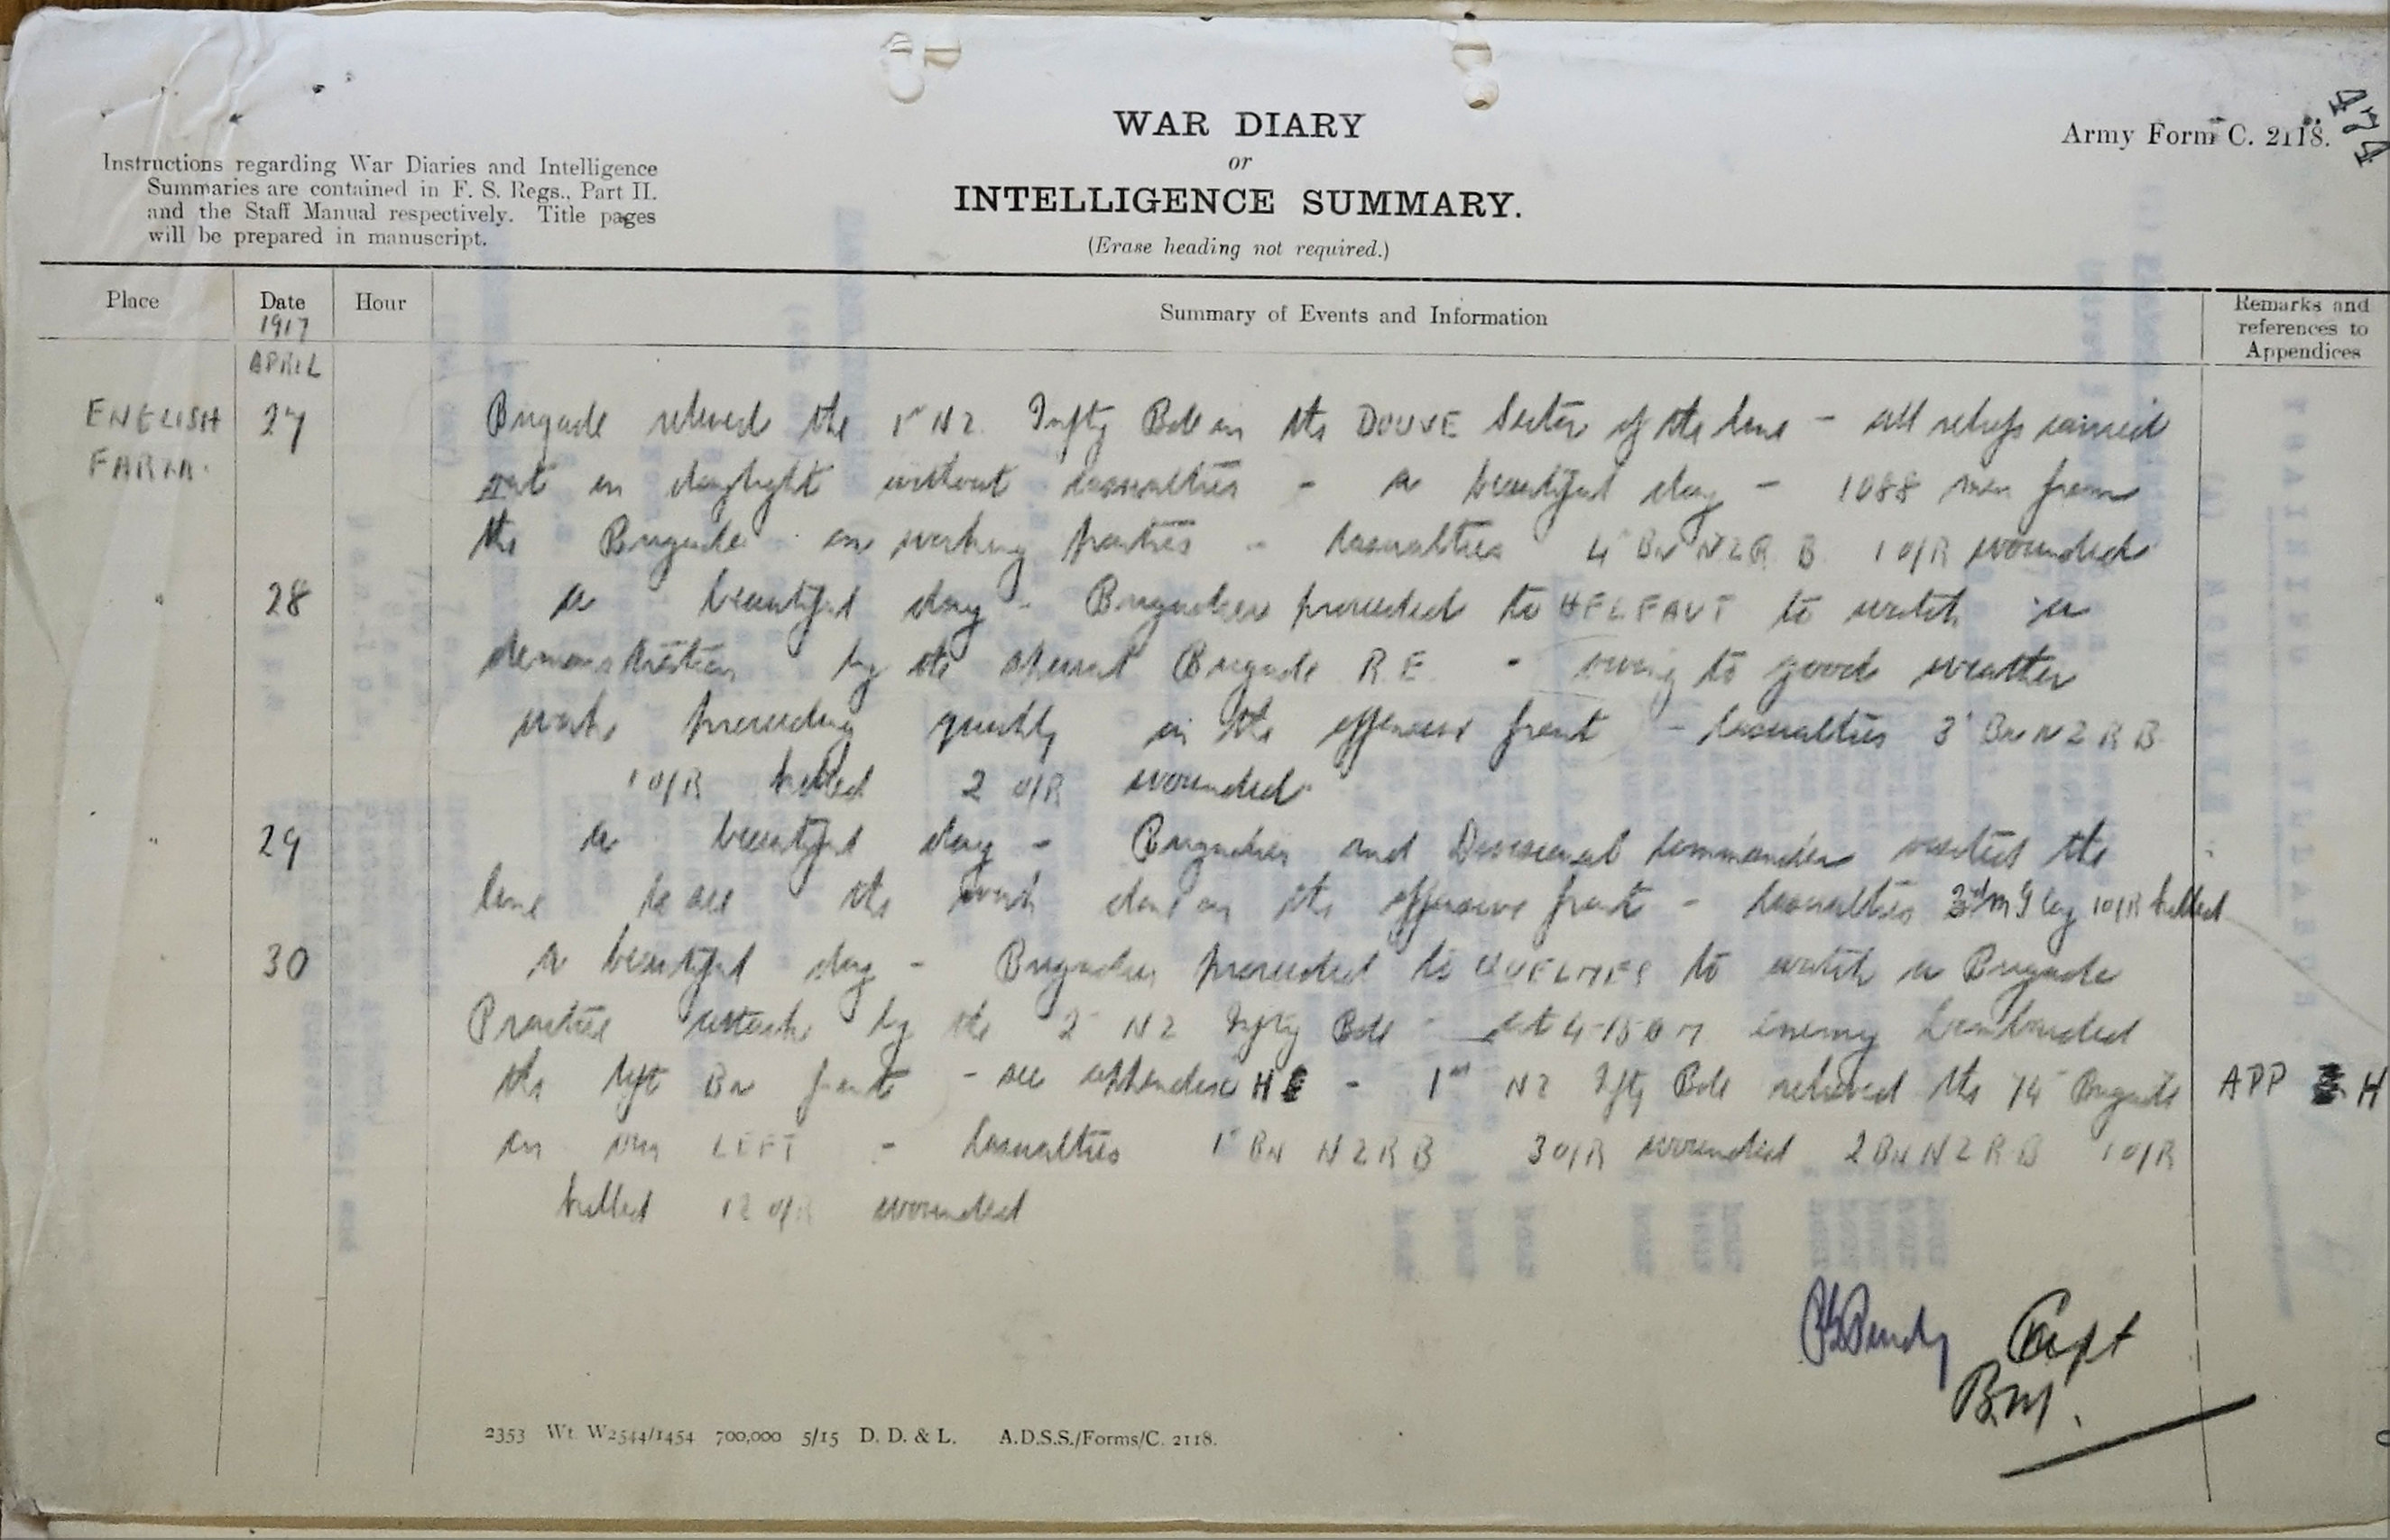 474
Army Form C. 2118.
WAR DIARY
or
INTELLIGENCE SUMMARY.
(Erase heading not required.)
Instructions regarding War Diaries and Intelligence
Summaries are contained in F. S. Regs., Part II.
and the Staff Manual respectively. Title pages
will be prepared in manuscript.
Place
Date
1917
Hour
Summary of Events and Information
Remarks and
references to
Appendices
APRIL
ENGLISH 27 Brigade relieved the 1st NZ Infty Bde in the DOUVE Sector of the line - all reliefs carried
FARM. out in daylight without casualties - a beautiful day - 1088 men from
the Brigade on working parties - Casualties 4 Bn NZRB 1 O/R wounded
" 28 a beautiful day - Brigadier proceeded to HELFAUT to watch a
demonstration by the special Brigade R.E. - owing to good weather
work proceeding quickly in the offensive front - Casualties 3 Bn NZRB
1 O/R killed 2 O/R wounded
" 29 a beautiful day - Brigadier and Divisional Commander visited the
line to see the work done on the offensive front - Casualties 3rd M G Coy 1 O/R killed
" 30 a beautiful day - Brigadier proceeded to QUELMES to watch a Brigade
Practice attack by the 2 NZ Infty Bde - at 4-15 enemy bombarded
the left Bn front - see appendix H - 1st NZ Ifty Bde relieved the 74 Brigade APP H
on our LEFT - Casualties 1st Bn NZRB 3 O/R wounded 2 Bn NZRB 1 O/R
killed 12 O/R wounded
Capt
B.M.
2353 Wt. W2544/1454 700,000 5/15 D. D. & L. A.D.S.S./Forms/C. 2118.